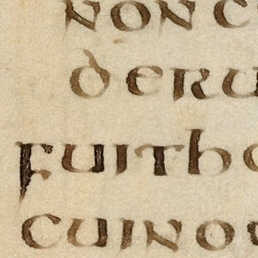 NON C
DERU
FUITHO
CUINOM